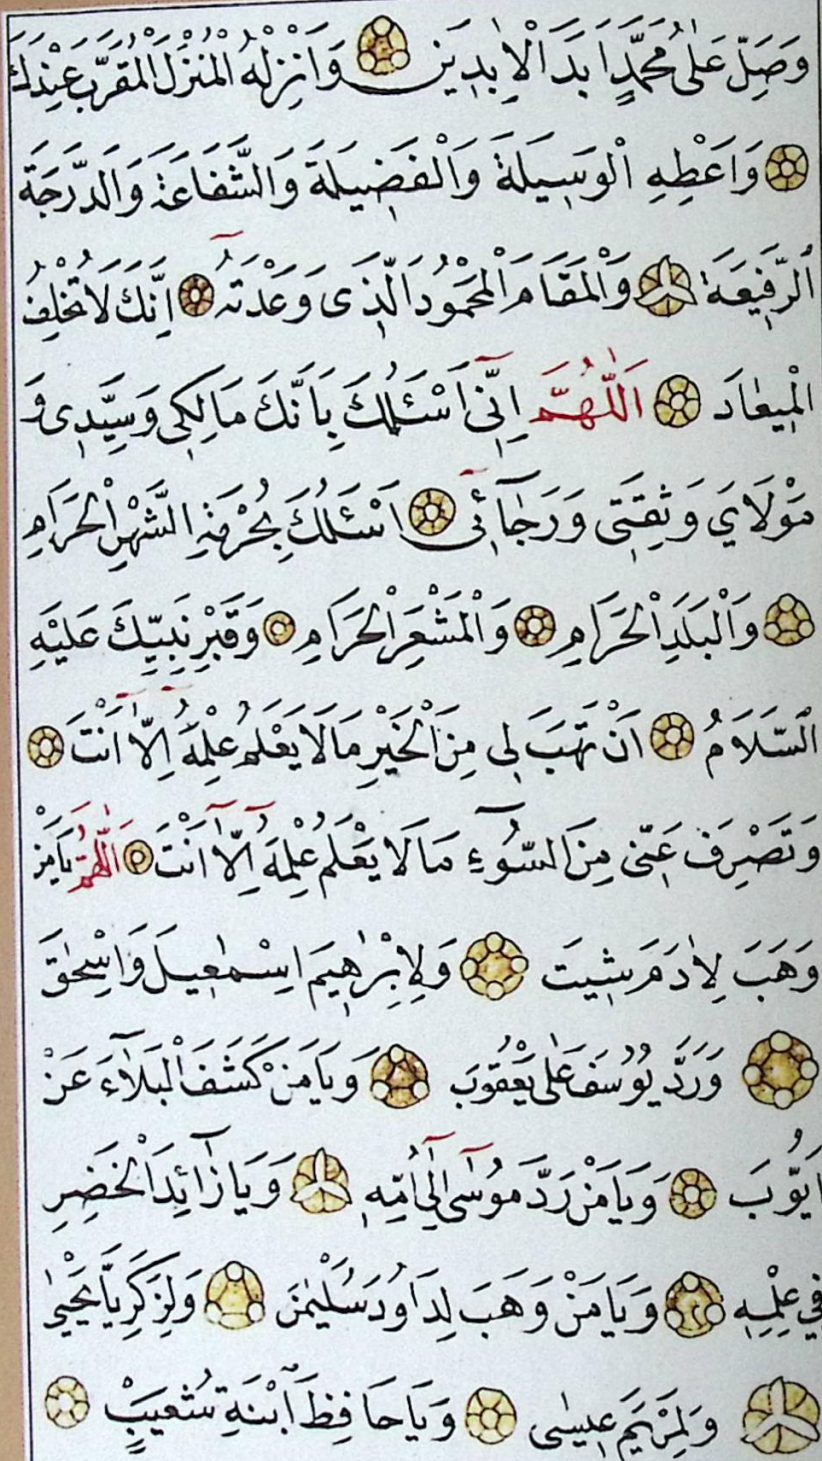 وَصَلِّ عَلٰى مُحَمَّدٍ اَبَدَ الْاٰبِدِينَ وَاَنْزِلْهُ الْمُنْزَلَ الْمُقَرَّبَ عِنْدَكَ
وَاَعْطِهِ الْوَسِيلَةَ وَالْفَضِيلَةَ وَالشَّفَاعَةَ وَالدَّرَجَةَ
الرَّفِيعَةَ وَالْمَقَامَ الْمَحْمُودَ الَّذِى وَعَدْتَهُ اِنَّكَ لَا تُخْلِفُ
الْمِيعَادَ اَللّٰهُمَّ اِنِّٓى اَسْئَلُكَ بِاَنَّكَ مَالِكِى وَسَيِّدِى وَ
مَوْلَايَ وَثِقَتِى وَرَجَٓائِى اَسْئَلُكَ بِحُرْمَةِ الشَّهْرِ الْحَرَامِ
وَالْبَلَدِ الْحَرَامِ وَالْمَشْعَرِ الْحَرَامِ وَقَبْرِ نَبِيِّكَ عَلَيْهِ
السَّلَامُ اَنْ تَهَبَ لِى مِنَ الْخَيْرِ مَالَا يَعْلَمُ عِلْمَهُٓ اِلَّٓا اَنْتَ
وَتَصْرِفَ عَنِّى مِنَ السُّٓوءِ مَالَا يَعْلَمُ عِلْمَهُٓ اِلَّٓا اَنْتَ اَللّٰهُمَّ يَامَنْ
وَهَبَ لِاٰدَمَ شِيتَ وَلِاِبْرٰهِيمَ اِسْمٰعِيلَ وَاِسْحٰقَ
وَرَدَّ يُوْسُفَ عَلٰى يَعْقُوبَ وَيَامَنْ كَشَفَ الْبَلَٓاءَ عَنْ
اَيُّوْبَ وَيَامَنْ رَدَّ مُوسٰٓى اِلٰٓى اُمِّهِ وَيَا زَٓائِدَ الْخَضِرِ
فِي عِلْمِهِ وَيَامَنْ وَهَبَ لِدَاوُدَ سُلَيْمٰنَ وَلِزَكَرِيَّا يَحْيٰى
وَلِمَرْيَمَ عِيسٰى وَيَاحَافِظَ ابْنَةِ شُعَيْبٍ